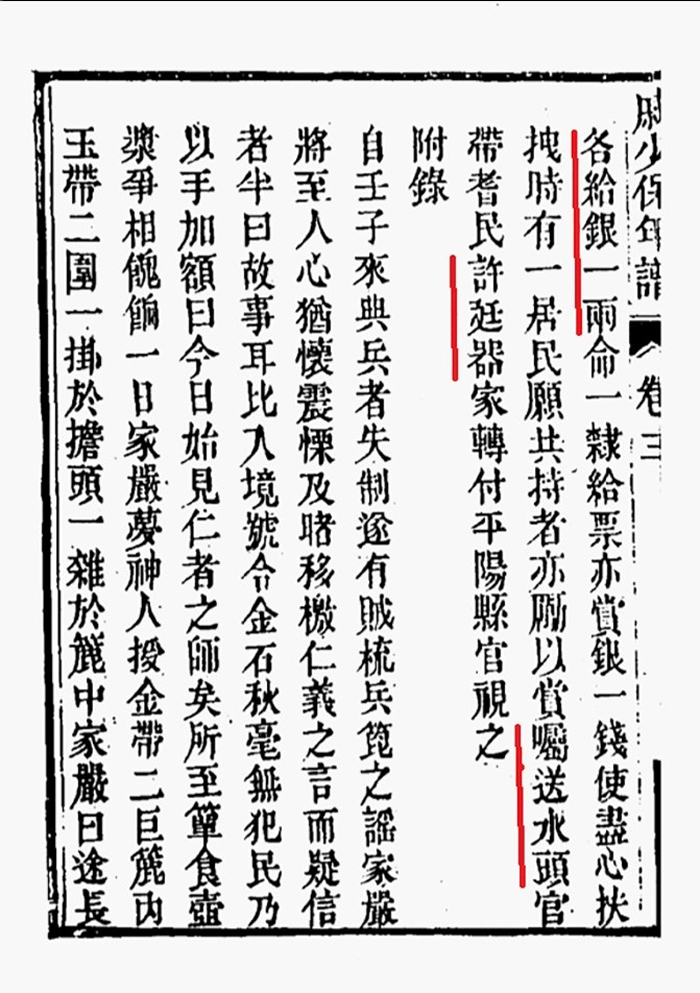 戚少保年譜 卷三
各給銀一兩命一隸給票亦賞銀一錢使盡心扶
拽時有一居民願共持者亦勵以賞囑送水頭官
帶耆民許廷器家轉付平陽縣官視之
附錄
自壬子來典兵者失制遂有賊梳兵篦之謠家嚴
將至人心猶懷震慄及睹移檄仁義之言而疑信
者半曰故事耳比入境號令金石秋毫無犯民乃
以手加額曰今日始見仁者之師矣所至簞食壺
漿爭相餽餉一日家嚴夢神人授金帶二巨簏內
玉帶二圍一掛於擔頭一雜於簏中家嚴曰途長